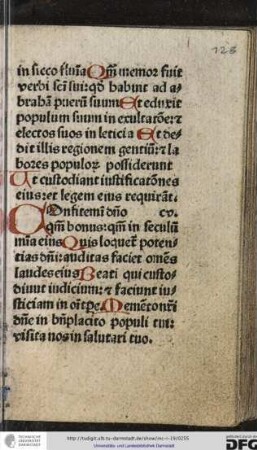 123
in sicco flūīa Qm̄ memor fuit
verbi scī sui: qd̄ habuit ad a-
brahā puerū suum Et eduxit
populum suum in exultatōe: ⁊
electos suos in leticia Et de-
dit illis regionem gentiū: ⁊ la
bores populoꝝ possiderunt
Ut custodiant iustificatōnes
eius: et legem eius requirāt.
COnfitemī dn̄o cv.
qm̄ bonus: qm̄ in seculū
mīa eius Quis loquet̄ poten-
tias dn̄i: auditas faciet om̄es
laudes eius Beati qui custo-
diunt iudicium: ⁊ faciunt iu-
sticiam in oī tp̄e. Memēto nr̄i
dn̄e in bn̄placito populi tui:
visita nos in salutari tuo.
TECHNISCHE UNIVERSITÄT DARMSTADT
Universitäts- und Landesbibliothek Darmstadt
DFG